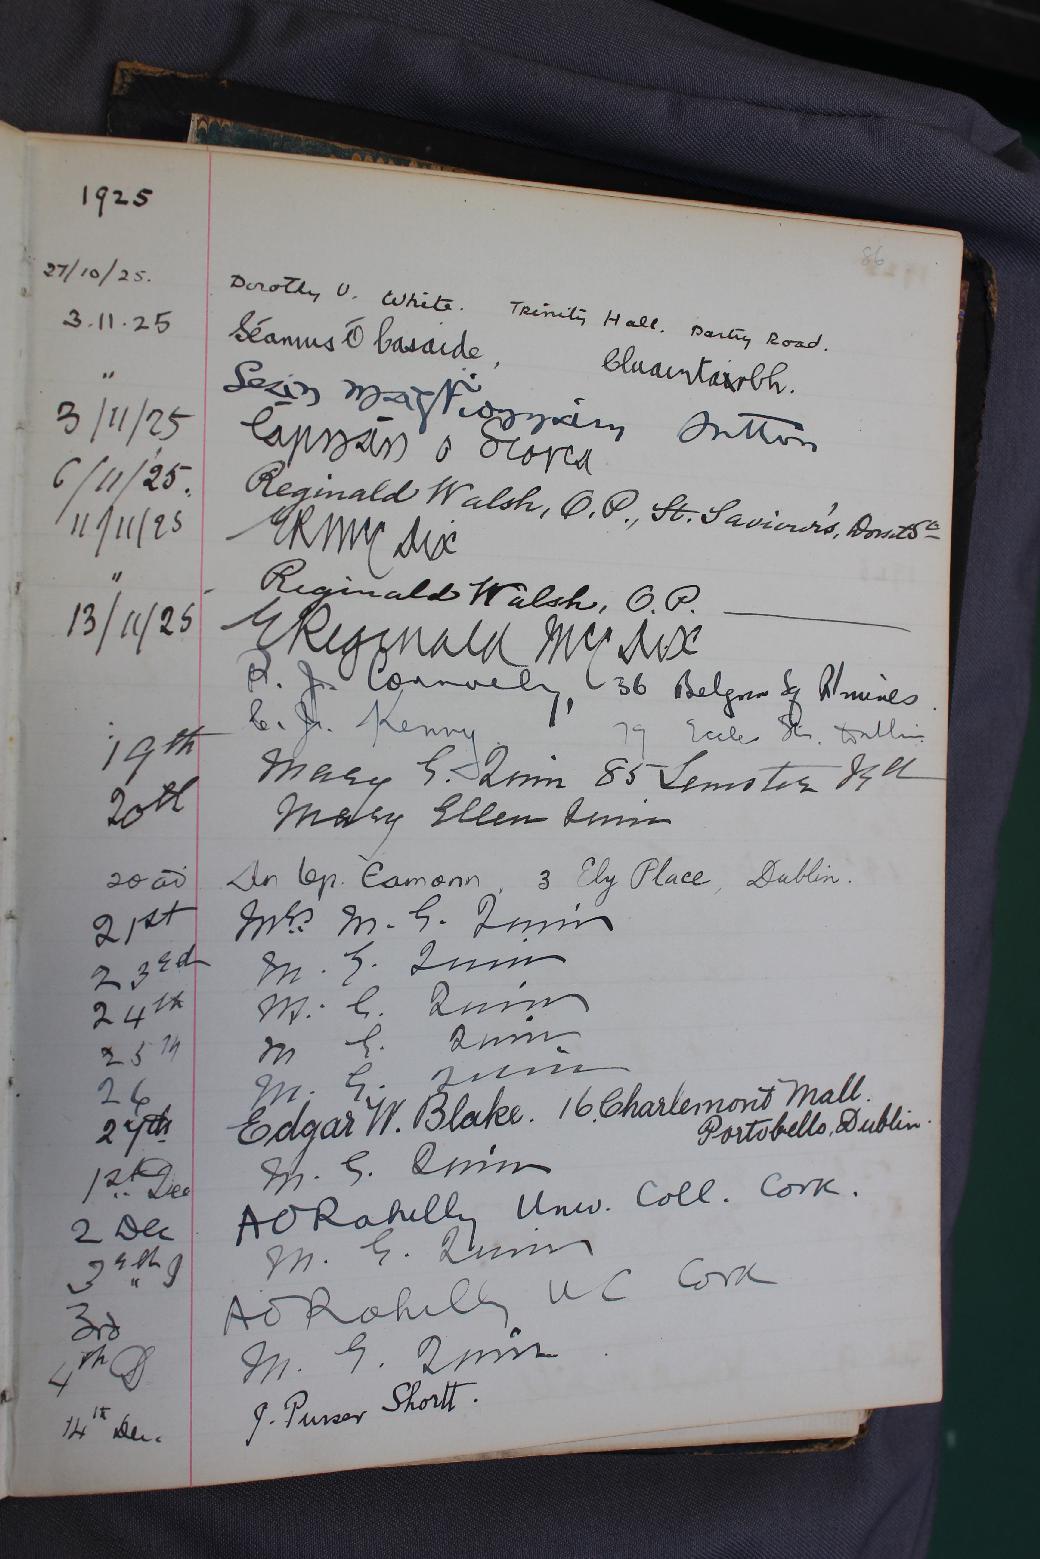 1925
86
27/10/25. Dorothy V. White. Trinity Hall. Dartry Road.
3.11.25 Séamus Ó Casaide, Cluaintarbh.
" Sutton
3/11/25 ó
6/11/25. Reginald Walsh, O.P., St. Saviour's, Dorset St
11/11/25 ERMcC Dix
" Reginald Walsh, O.P.
13/11/25 E Reginald McC Dix
P. J. Connolly, 36 Belgrave Sq R'mines.
C. J. Kenny 79 Eccles St. Dublin
19th Mary E. Quinn 85 Leinster Rd
20th Mary Ellen Quinn
20ad An Bp. Eamonn, 3 Ely Place, Dublin.
21st Mrs M. E. Quinn
23rd M. E. Quinn
24th M. E. Quinn
25th M E. Quinn
26 M. E. Quinn
27th Edgar W. Blake. 16. Charlemont Mall.
Portobello, Dublin.
1st Dec M. E. Quinn
2 Dec AORahilly Univ. Coll. Cork.
M. E. Quinn
3rd AORahilly UC Cork
4th D M. E. Quinn
14th Dec. J. Purser Shortt.